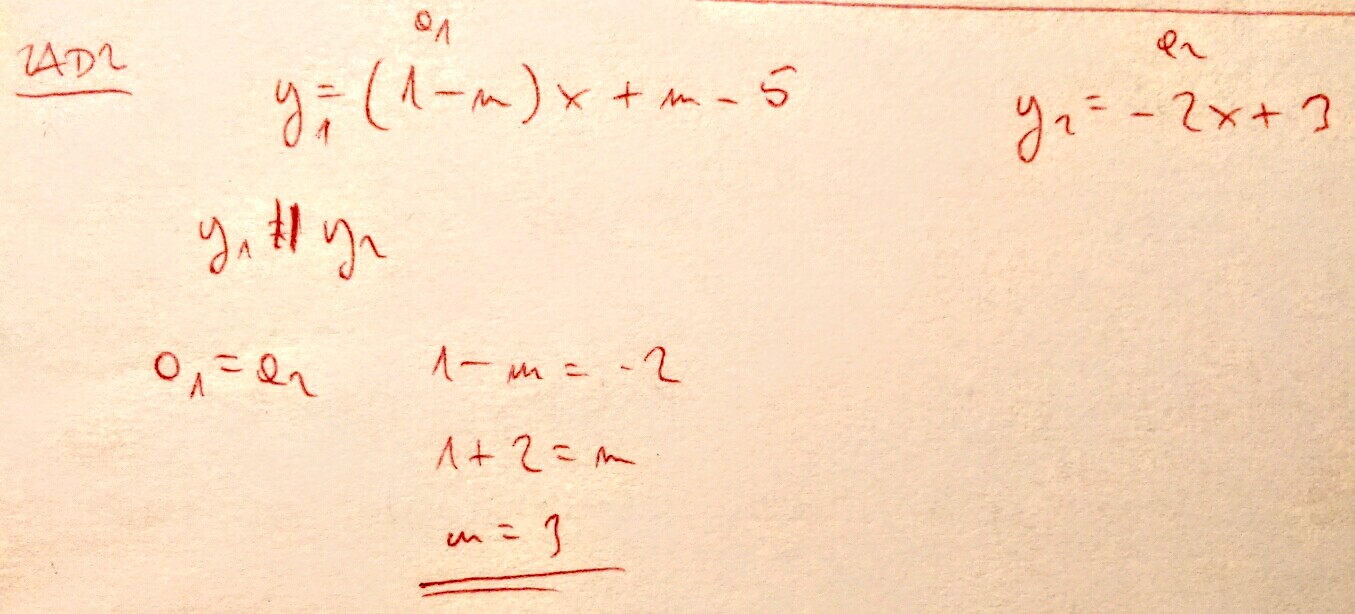 ZAD2
a₁ a₂
y₁ = (1-m)x + m - 5 y₂ = -2x + 3
y₁ ∦ y₂
a₁ = a₂ 1-m = -2
1+2 = m
m = 3